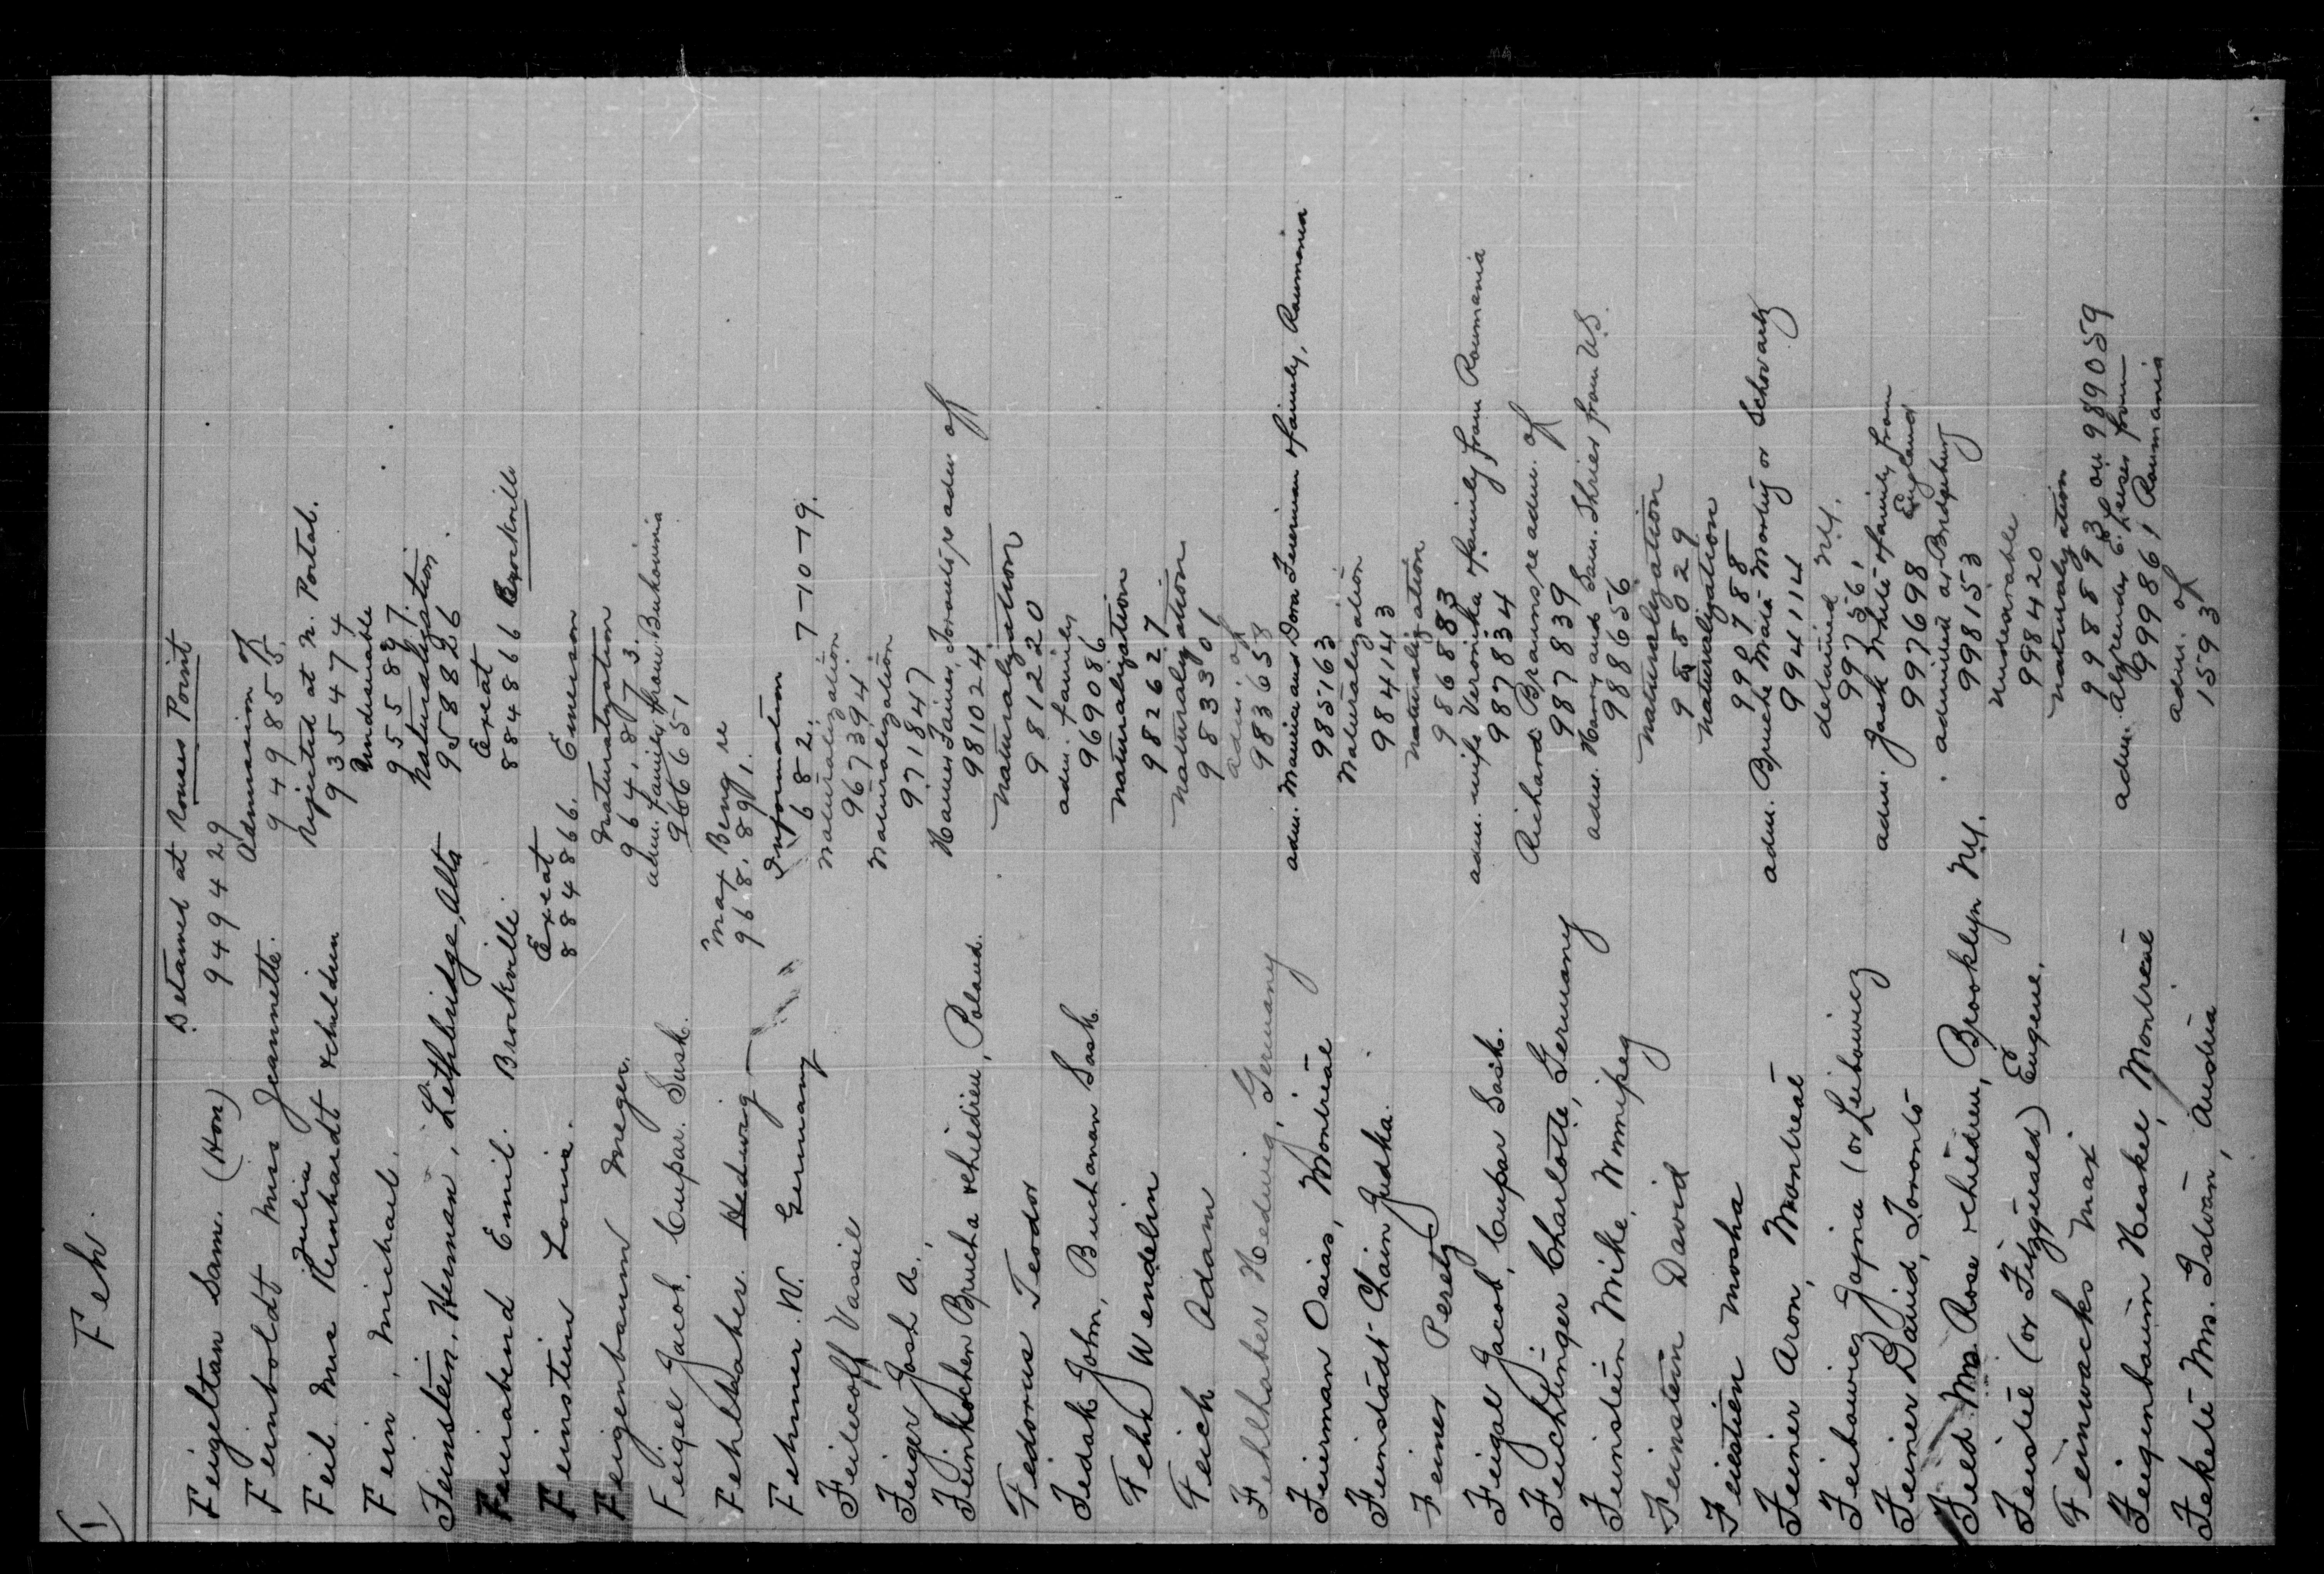 1) Feh.
Feigeltan Sam. (Hon) Detained at Rouses Point
949429
Feinboldt Miss Jeannette. Admission of
949855.
Julia
Feil Mrs Reinhardt & children Rejected at N. Portal.
935474
Fein, Michael. Undesirable
955887
Feinstein, Herman, Lethbridge, Alta Naturalization
958826
Feuirabend Emil. Brockville. Exeat
884866 Brockville
Feinstein Louis. Exeat
884866. Emerson
Feigenbaum Meger. Naturalization
964,873.
Feigel Jacob, Cupar. Sask. adm. family from Bukovinia
966651
Fehlbaber. Hedwig Max Beng re
968,891.
Fehmer. W. Germany Information
682. 7-10-19.
Feilecoff Vassil Naturalization
967394.
Feiger Josh A., Naturalization
971847
Feinkochen Brucha & children, Poland. adm. of
981024
Fedorus Teodor Naturalization
981220
Fedak John, Buchanan Sask. adm. family
969086
Fehr Wendelin Naturalization
982627
Feich Adam Naturalization
983301
Fehlhaber Hedwig, Germany adm. of
983658
Feierman Osias, Montreal adm. Maurice and Dora Feierman & family, Roumania
985163
Feinstadt Chain Judka. Naturalization
984143
Feiner Peretz Naturalization
986883
Feigal Jacob, Cupar Sask. adm. wife Veronika & family from Roumania
987834
Feichtinger Charlotte, Germany Richard Brauns re adm. of
987839
Feinstein Mike, Winnipeg adm. Harry and Sam. Shrier from U.S.
988656
Feinstein David Naturalization
988029
Feiestien Mosha Naturalization
990788
Feiner Aron, Montreal adm. Bruche Mala Monty or Schwartz
994114
Feibowicz Gajna (or Leibowicz detained N.Y.
99756,
Feiner David, Toronto adm. Jack White & family from England
997698
Feld Mrs. Rose & children, Brooklyn N.Y. admitted at Bridgeburg
998153
Feistel (or Fitzgerald) Eugene. Undesirable
998420
Feinwachs Max Naturalization
998893 & on 989059
Feigenbaum Heskel, Montreal adm. from Roumania
999861
Fekete Mrs. Istvan, Austria adm. of
1593